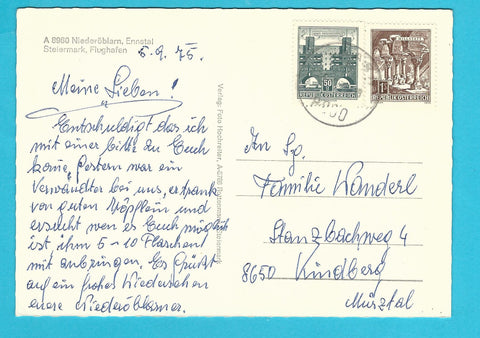 A 8960 Niederöblarn, Ennstal
Steiermark, Flughafen
5.9.75.
Meine Lieben!
Entschuldigt das ich
mit einer bitte zu Euch
kome, Gestern war ein
Verwandter bei uns, er trank
von guten und
ersucht wen es Euch möglich
ist ihm 5-10 Flaschen
mit zubringen. Es Grüßt
auf ein frohes Wiedersehen
eure Niederöblarner.
Verlag: Foto Hochreiter,
50 g
REPUBLIK ÖSTERREICH
MILLSTATT
1 S
REPUBLIK ÖSTERREICH
An Sg.
Familie Wanderl
Stanzbachweg 4
8650 Kindberg
Mürztal